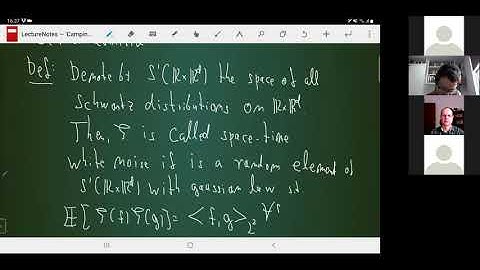 16:27
LectureNotes – 'Campin
Def: Denote by S'(ℝ×ℝᵈ) the space of all
Schwartz distributions on ℝ×ℝᵈ.
Then, ξ is called space-time
white noise if is a random element of
S'(ℝ×ℝᵈ) with gaussian law s.t
𝔼[ξ(f)ξ(g)] = <f,g>_L²